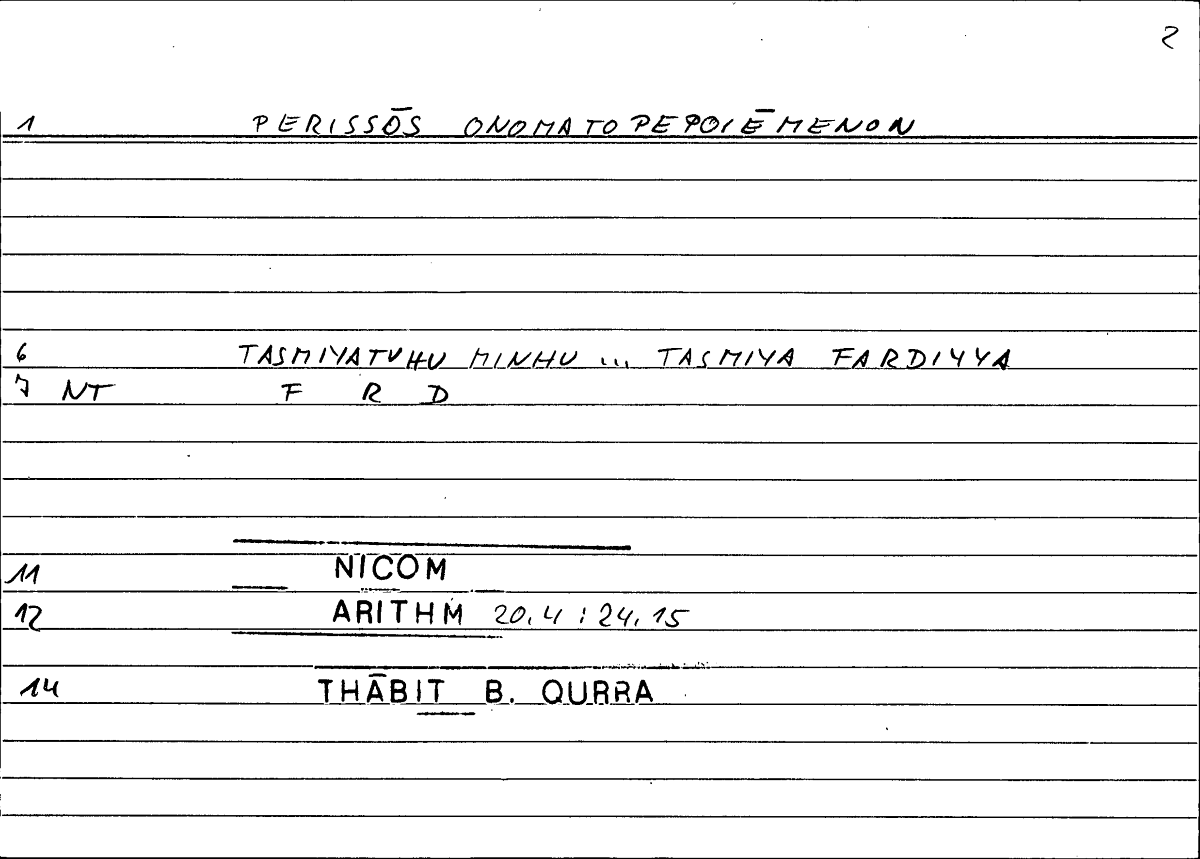 2
1 PERISSŌS ONOMATOPEPOIĒMENON
6 TASMIYATUHU MINHU ... TASMIYA FARDIYYA
7 NT F R D
11 NICOM
12 ARITHM 20,4 : 24,15
14 THĀBIT B. QURRA